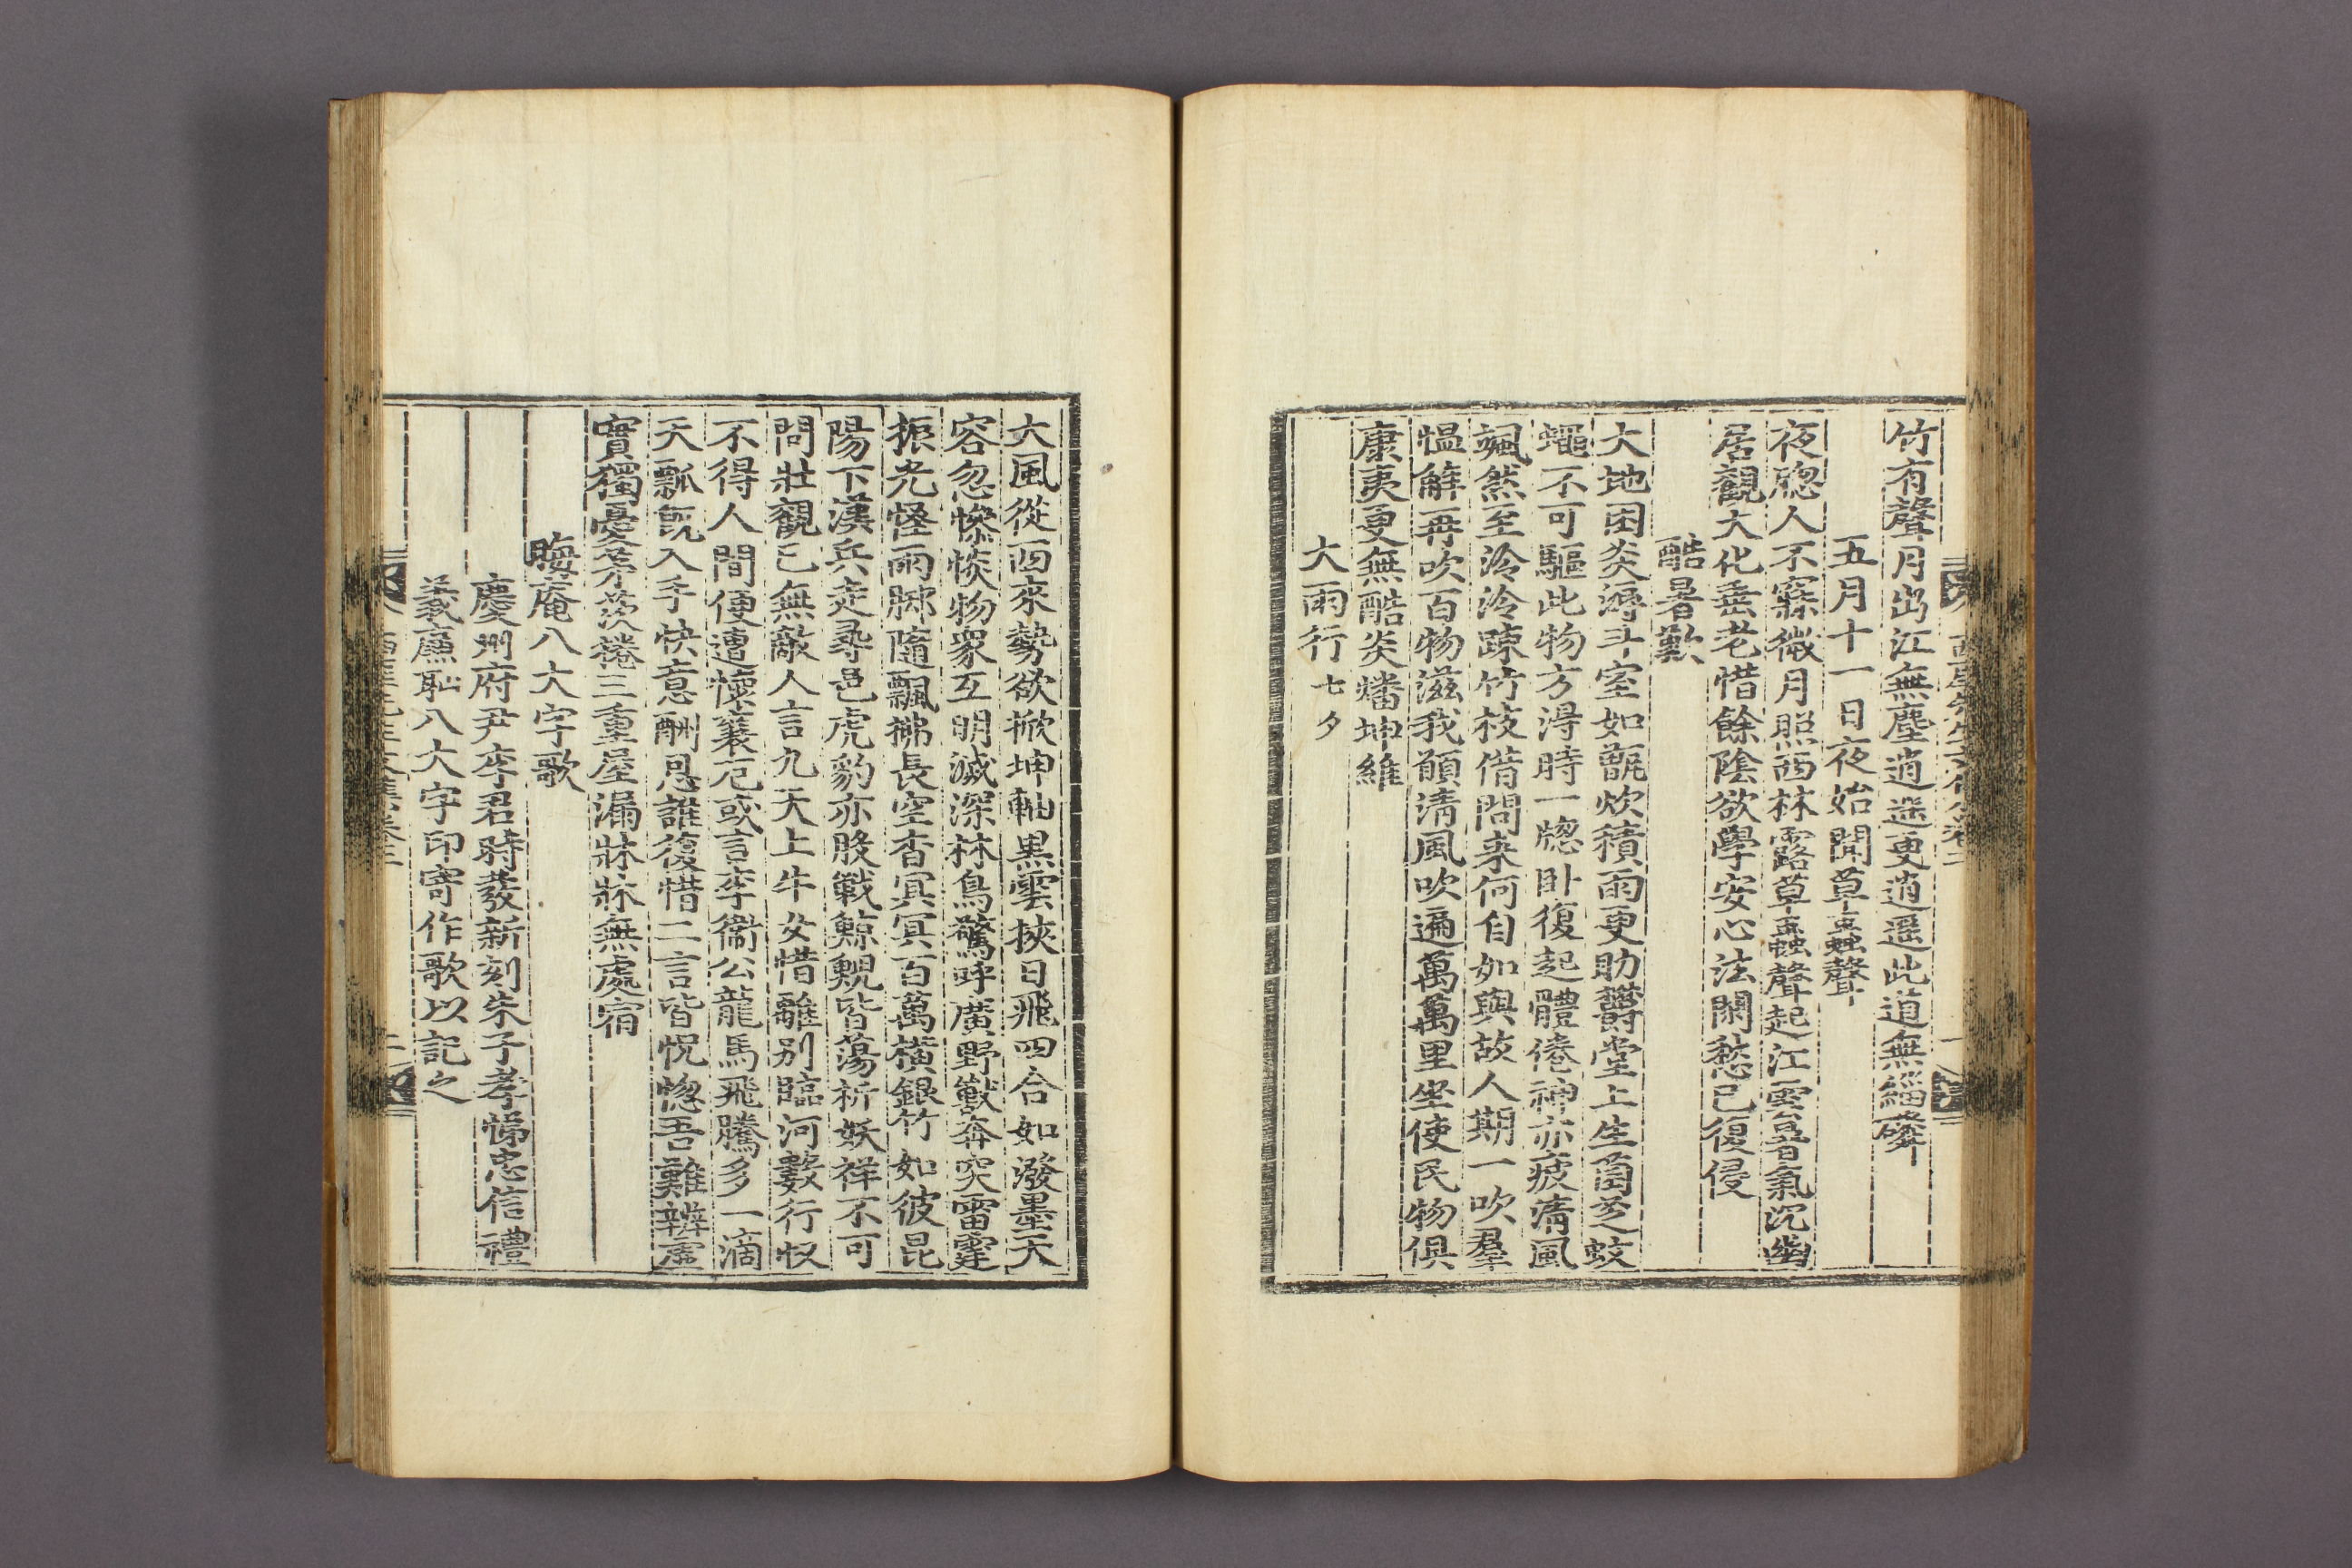 竹有聲月出江無塵逍遥更逍遥此道無緇磷
五月十一日夜始聞草蟲聲
夜牕人不寐微月照西林露草蟲聲起江雲暑氣沉幽
居觀大化垂老惜餘陰欲學安心法閑愁已復侵
酷暑歎
大地困炎溽斗室如甑炊積雨更助欝堂上生菌芝蚊
蠅不可驅此物方得時一牕卧復起體倦神亦疲淸風
颯然至泠泠踈竹枝借問来何自如與故人期一吹羣
愠解再吹百物滋我願淸風吹遍萬萬里坐使民物俱
康夷更無酷炎燔坤維
大雨行 七夕
大風從西來勢欲掀坤軸黒雲挾日飛四合如潑墨天
容忽慘惔物象互明滅深林鳥驚呼廣野獸奔突雷霆
振光怪雨脚隨飄拂長空杳冥冥百萬横銀竹如彼昆
陽下漢兵走尋邑虎豹亦股戰鯨鯢皆蕩析妖祥不可
問壯觀已無敵人言九天上牛女惜離别臨河數行㳄
不得人間便遭懷襄厄或言李衛公龍馬飛騰多一滴
天瓢旣入手快意酬恩誰復惜二言皆怳惚吾難辨虛
實獨憂茅茨捲三重屋漏牀牀無處宿
晦庵八大字歌
慶州府尹李君時發新刻朱子孝悌忠信禮
義廉耻八大字印寄作歌以記之
二